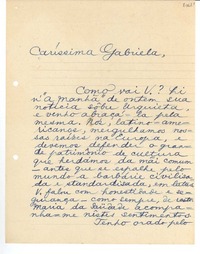 Caríssima Gabriela,
Como vai V.? Li
n'"A manhã" de ontem sua
notícia sobre Arquieta,
e venho abraçá-la pela
mesma. Nós, latino-ame-
ricanos, mergulhamos nos-
sas raízes na Europa, e
devemos defender o gran-
de patrimonio de cultura
que herdamos da mãi comum
— antes que se espalhe pelo
mundo a barbárie civilisa-
da e standardisada, em datas
V. falou com honestidade e se-
gurança — como sempre, de resto.
Maria da Saudade acompa-
nha-me nestes sentimentos
Tenho orado pelo